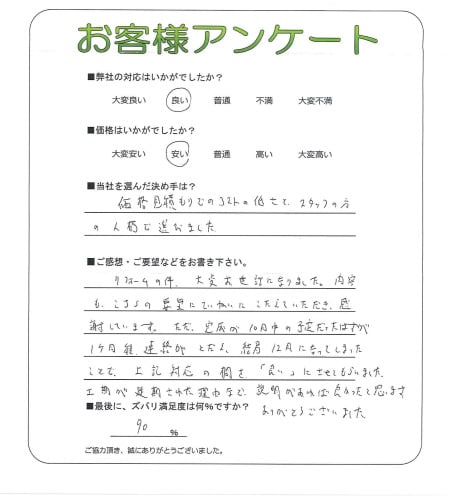 お客様アンケート
■弊社の対応はいかがでしたか？
大変良い 良い 普通 不満 大変不満
■価格はいかがでしたか？
大変安い 安い 普通 高い 大変高い
■当社を選んだ決め手は？
価格見積もりでのコストの低さと、スタッフの方
の人柄で選びました
■ご感想・ご要望などをお書き下さい。
リフォームの件、大変お世話になりました。内容
も、こちらの要望にていねいにこたえていただき、感
謝しています。ただ、完成が10月中の予定だったはずが
1ヶ月程、連絡が とだえ、結局 12月になってしまった
ことで、上記対応の欄を、「良い」にさせてもらいました。
工期が延期された理由など、説明があれば良かったと思います
ありがとうございました
■最後に、ズバリ満足度は何%ですか？
90 %
ご協力頂き、誠にありがとうございました。